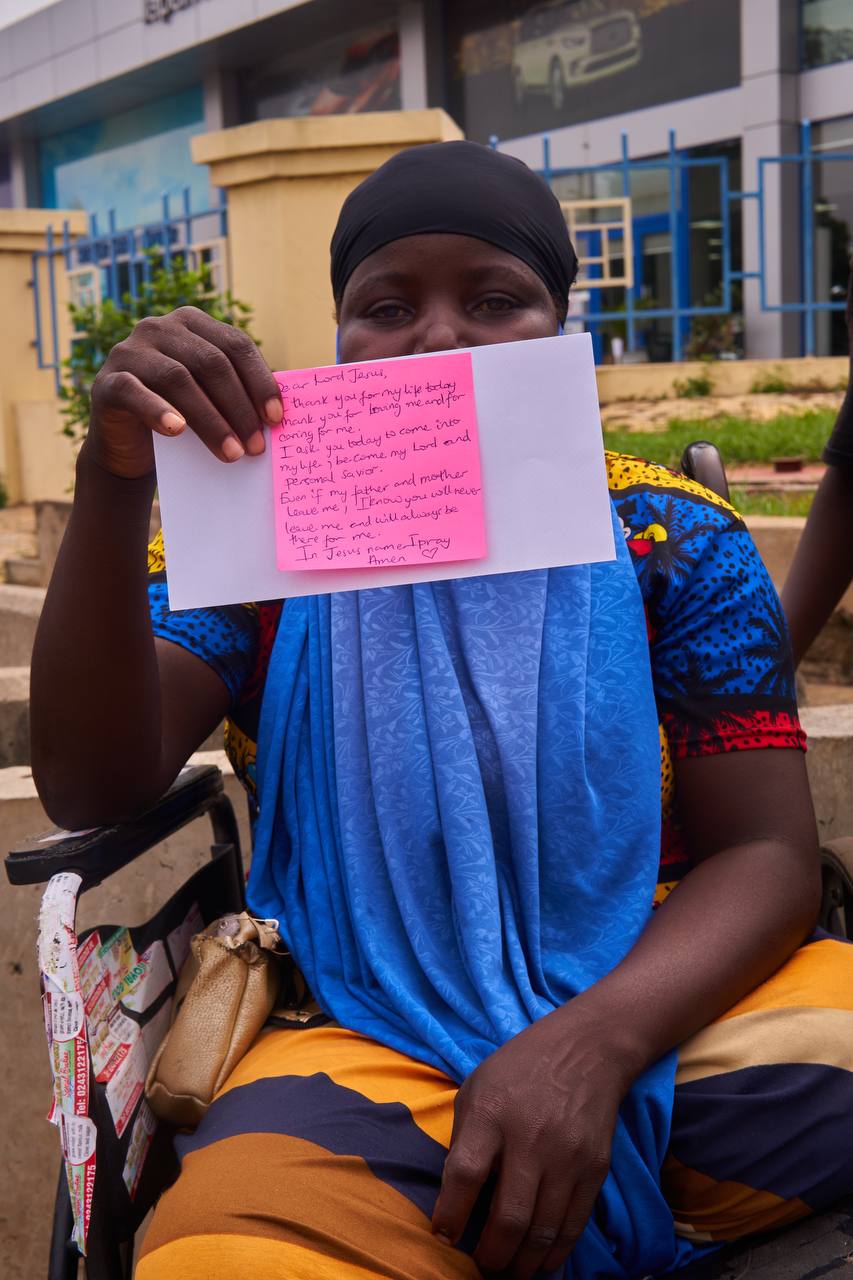 Dear Lord Jesus,
I thank you for my life today
thank you for loving me and for
caring for me.
I ask you today to come into
my life; become my Lord and
personal savior.
Even if my father and mother
leave me, I know you will never
leave me and will always be
there for me.
In Jesus name I pray
Amen ♡
Tel: 0243122175
0243122175